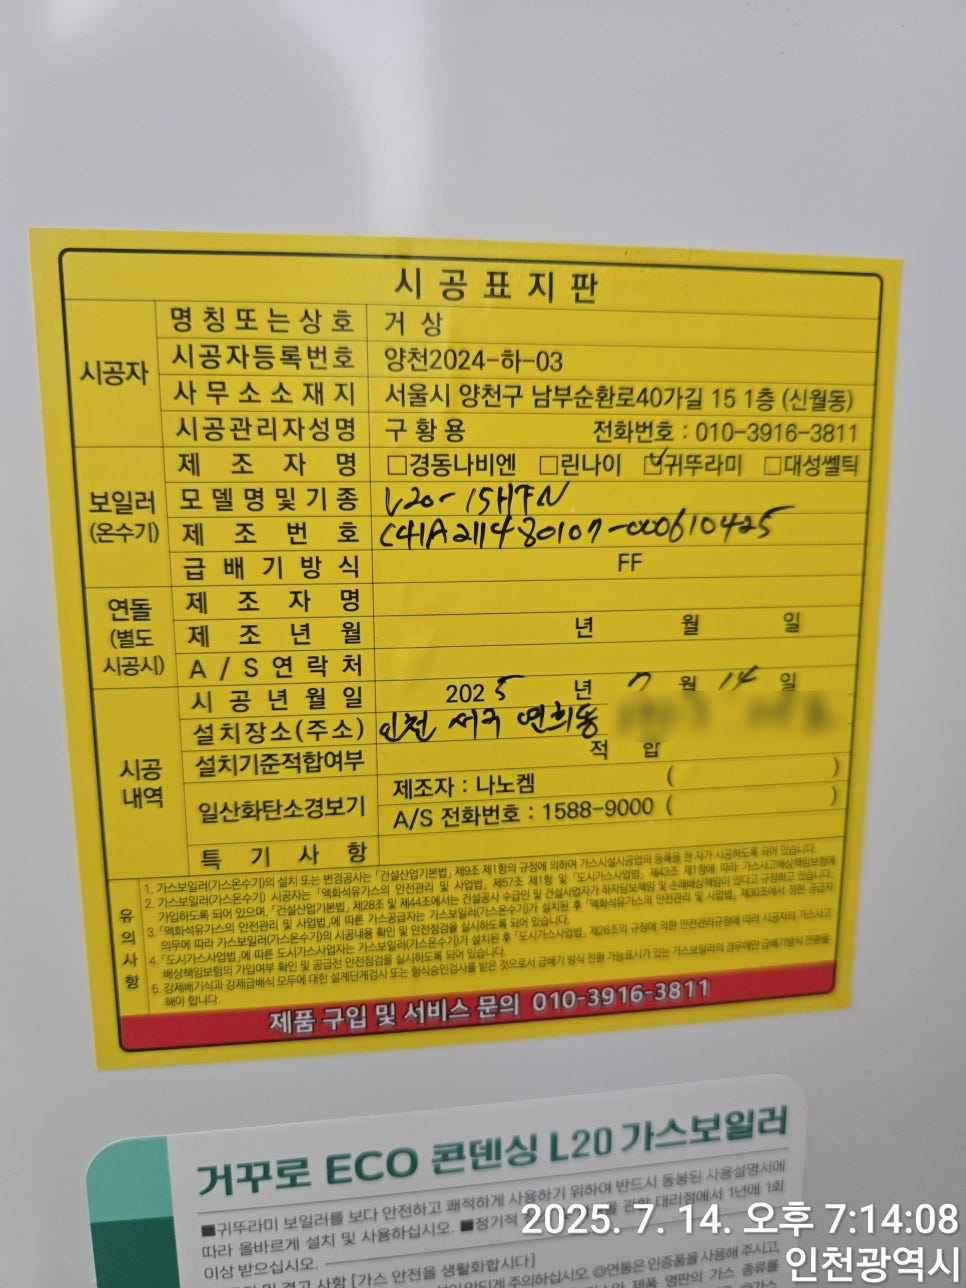 시공표지판
시공자
명칭또는상호 거상
시공자등록번호 양천2024-하-03
사무소소재지 서울시 양천구 남부순환로40가길 15 1층 (신월동)
시공관리자성명 구황용 전화번호 : 010-3916-3811
보일러
(온수기)
제조자명 □경동나비엔 □린나이 ☑귀뚜라미 □대성쎌틱
모델명및기종 L20-15HFN
제조번호 C41A211480107-000610425
급배기방식 FF
연돌
(별도
시공시)
제조자명
제조년월 년 월 일
A/S연락처
시공
내역
시공년월일 2025 년 7 월 14 일
설치장소(주소) 인천 서구 연희동
설치기준적합여부 적 합
일산화탄소경보기 제조자 : 나노켐 ( )
A/S 전화번호 : 1588-9000 ( )
특기사항
유의사항
1. 가스보일러(가스온수기)의 설치 또는 변경공사는 「건설산업기본법」 제9조 제1항의 규정에 의하여 가스시설시공업의 등록을 한 자가 시공하도록 되어 있습니다.
2. 가스보일러(가스온수기) 시공자는 「액화석유가스의 안전관리 및 사업법」 제57조 제1항 및 「도시가스사업법」 제43조 제1항에 따라 가스사고배상책임보험에
가입하도록 되어 있으며, 「건설산업기본법」 제28조 및 제44조에서는 건설공사 수급인 및 건설사업자가 하자담보책임 및 손해배상책임이 있다고 규정하고 있습니다.
3. 「액화석유가스의 안전관리 및 사업법」에 따른 가스공급자는 가스보일러(가스온수기)가 설치된 후 「액화석유가스의 안전관리 및 사업법」 제30조에서 정한 공급자
의무에 따라 가스보일러(가스온수기)의 시공내용 확인 및 안전점검을 실시하도록 되어 있습니다.
4. 「도시가스사업법」에 따른 도시가스사업자는 가스보일러(가스온수기)가 설치된 후 「도시가스사업법」 제26조의 규정에 의한 안전관리규정에 따라 시공자의 가스사고
배상책임보험의 가입여부 확인 및 공급전 안전점검을 실시하도록 되어 있습니다.
5. 강제배기식과 강제급배식 모두에 대한 설계단계검사 또는 형식승인검사를 받은 것으로서 급배기 방식 전환 가능표시가 있는 가스보일러의 경우에만 급배기방식 전환을
해야 합니다.
제품 구입 및 서비스 문의 010-3916-3811
거꾸로 ECO 콘덴싱 L20 가스보일러
■귀뚜라미 보일러를 보다 안전하고 쾌적하게 사용하기 위하여 반드시 동봉된 사용설명서에
따라 올바르게 설치 및 사용하십시오. ■정기적 대리점에서 1년에 1회
이상 받으십시오.
사항 [가스 안전을 생활화합시다]
주의하십시오. ◎연통은 인증품을 사용해 주시고,
제품 명판의 가스 종류를
2025. 7. 14. 오후 7:14:08
인천광역시